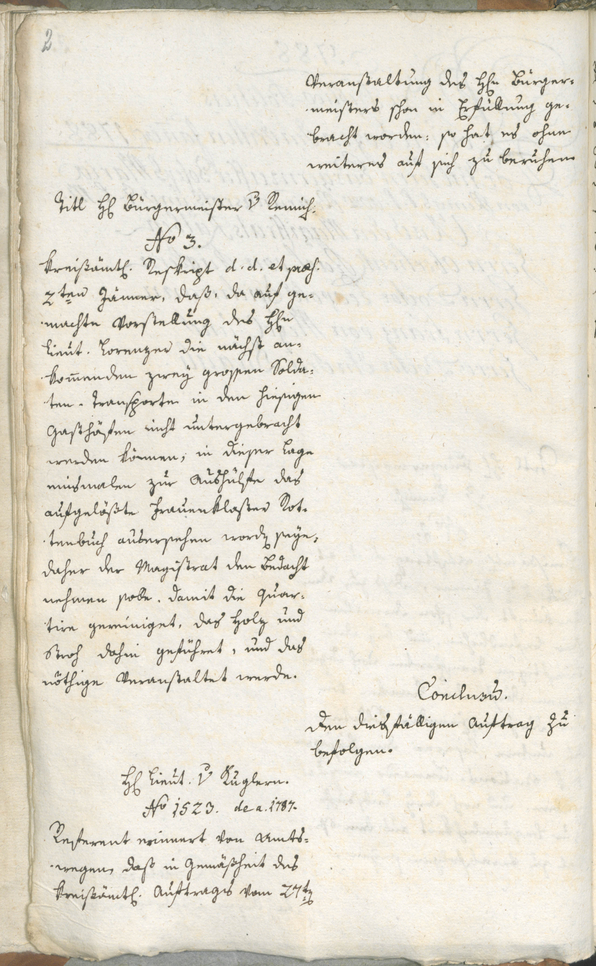 2.
Veranstaltung des H̅n Bürger-
meisters schon in Erfüllung ge-
bracht worden; so hat es ohne
weiteres auf sich zu beruhen.
Titl H̅ Bürgermeister v Remich.
No 3.
Kreisämtl. Reskript d. d. et præs.
2ten Jänner, daß, da auf ge-
machte Vorstellung des H̅n
Lieut. Lorenzer die nächst an-
kommenden zwey grossen Solda-
ten-Transporte in den hiesigen
Gasthäusern nicht untergebracht
werden können, in dieser Lage
einsmalen zur Aushülfe das
aufgelößte Frauenkloster Rot-
tenbuch ausersehen worden seye,
daher der Magistrat den Bedacht
nehmen solle, damit die Quar-
tire gereiniget, das Holz und
Stroh dahin geführet, und das
nöthige Veranstaltet werde.
Conclusum.
Den diesfälligen Auftrag zu
befolgen.
H̅ Lieut. v Kuglern.
No 1523. de a. 1787.
Referent erinnert von Amts-
wegen, daß in Gemäßheit des
Kreisämtl. Auftrages vom 27ten